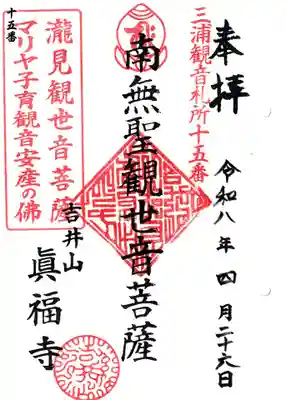 奉拝
三浦観音札所十五番
令和八年四月二十六日
南無聖観世音菩薩
十五番
瀧見観世音菩薩
マリヤ子育観音安産の佛
吉井山
眞福寺